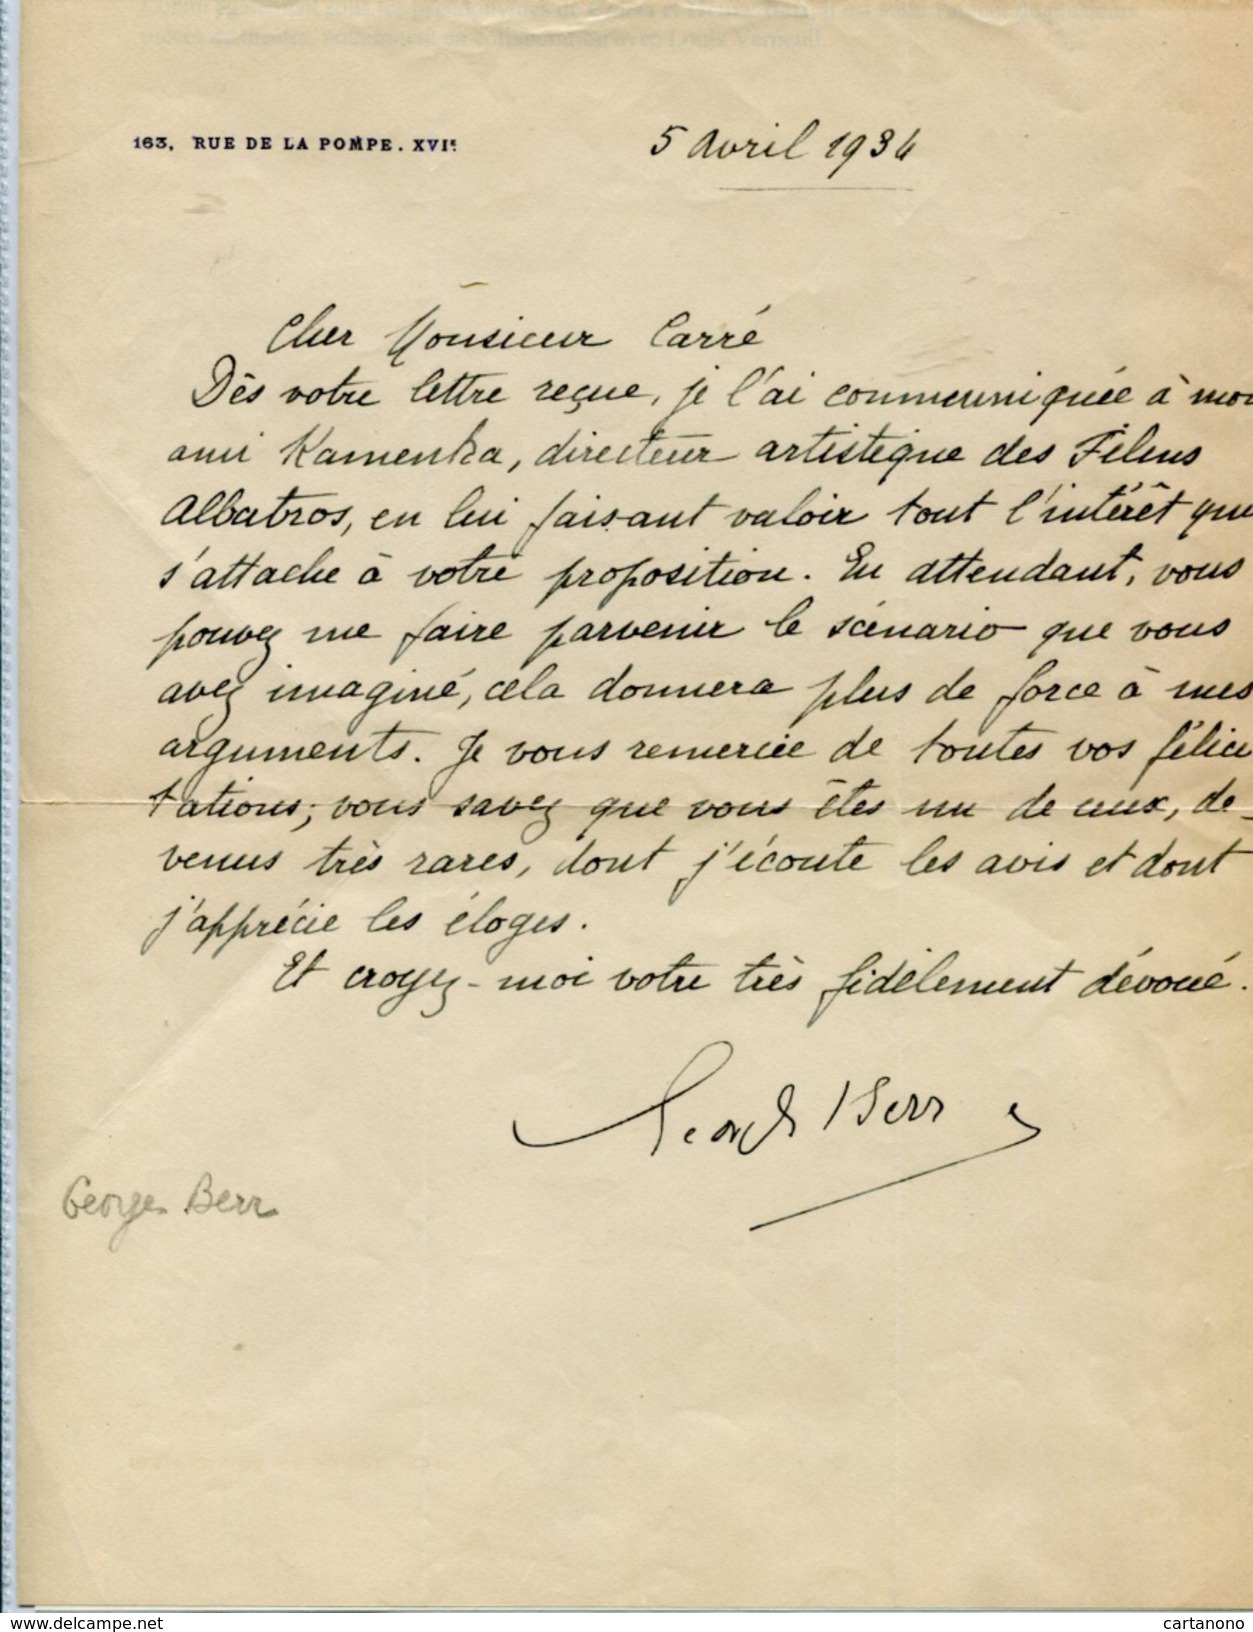 163, RUE DE LA POMPE. XVIe
5 avril 1934
Cher Monsieur Carré
Dès votre lettre reçue, je l'ai communiquée à mon
ami Kamenka, directeur artistique des Films
Albatros, en lui faisant valoir tout l'intérêt que
s'attache à votre proposition. En attendant, vous
pouvez me faire parvenir le scénario que vous
avez imaginé, cela donnera plus de force à mes
arguments. Je vous remercie de toutes vos félici
tations; vous savez que vous êtes un de ceux, de-
venus très rares, dont j'écoute les avis et dont
j'apprécie les éloges.
Et croyez-moi votre très fidèlement dévoué.
Georges Berr
Georges Berr
https://www.delcampe.net
cartanono